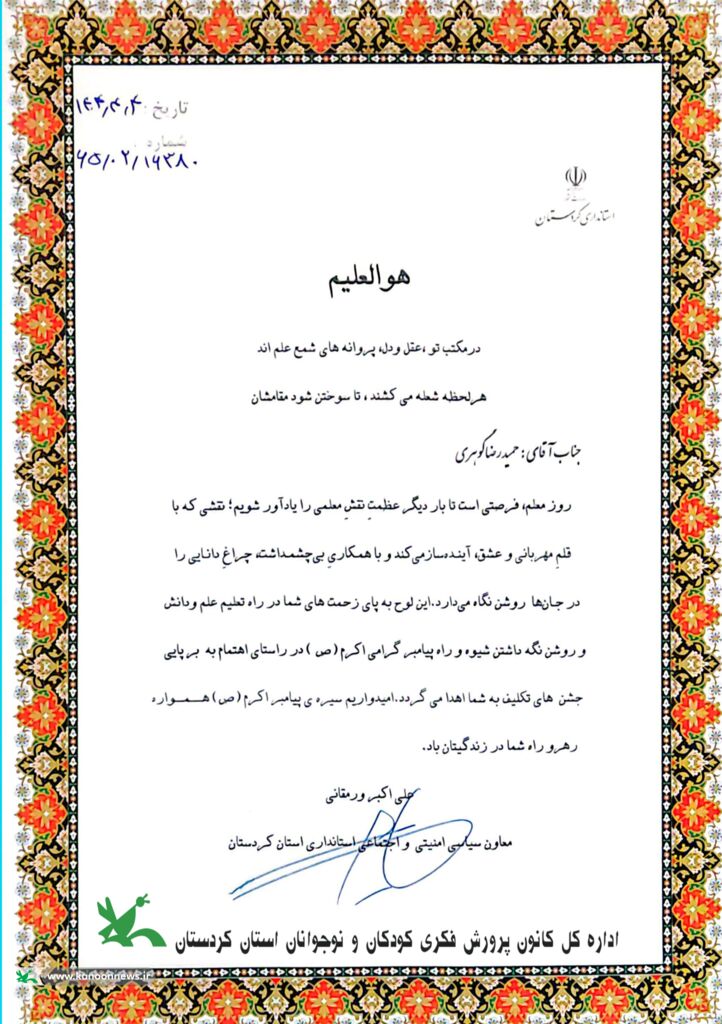 تاریخ :
شماره :
۹۵/۰۲/۱۶۳۸۰
استانداری کردستان
هوالعلیم
در مکتب تو ،عقل ودل، پروانه های شمع علم اند
هرلحظه شعله می کشند، تا سوختن شود مقامشان
جناب آقای: حمیدرضا گوهری
روز معلم، فرصتی است تا بار دیگر عظمتِ نقشِ معلمی را یادآور شویم؛ نقشی که با
قلمِ مهربانی و عشق، آینده‌ساز می‌کند و با همکاریِ بی‌چشمداشت، چراغِ دانایی را
در جان‌ها روشن نگاه می‌دارد.این لوح به پای زحمت های شما در راه تعلیم علم ودانش
و روشن نگه داشتن شیوه و راه پیامبر گرامی اکرم (ص ) در راستای اهتمام به برپایی
جشن های تکلیف به شما اهدا می گردد.امیدواریم سیره ی پیامبر اکرم (ص) همــواره
رهرو راه شما در زندگیتان باد.
علی اکبر ورمقانی
معاون سیاسی امنیتی و اجتماعی استانداری استان کردستان
اداره کل کانون پرورش فکری کودکان و نوجوانان استان کردستان
www.kanoonnews.ir